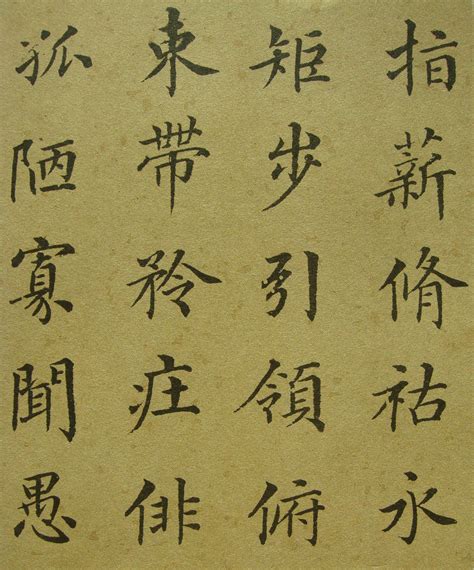 指薪脩祜永
矩步引領俯
束帶矜庄俳
孤陋寡聞愚